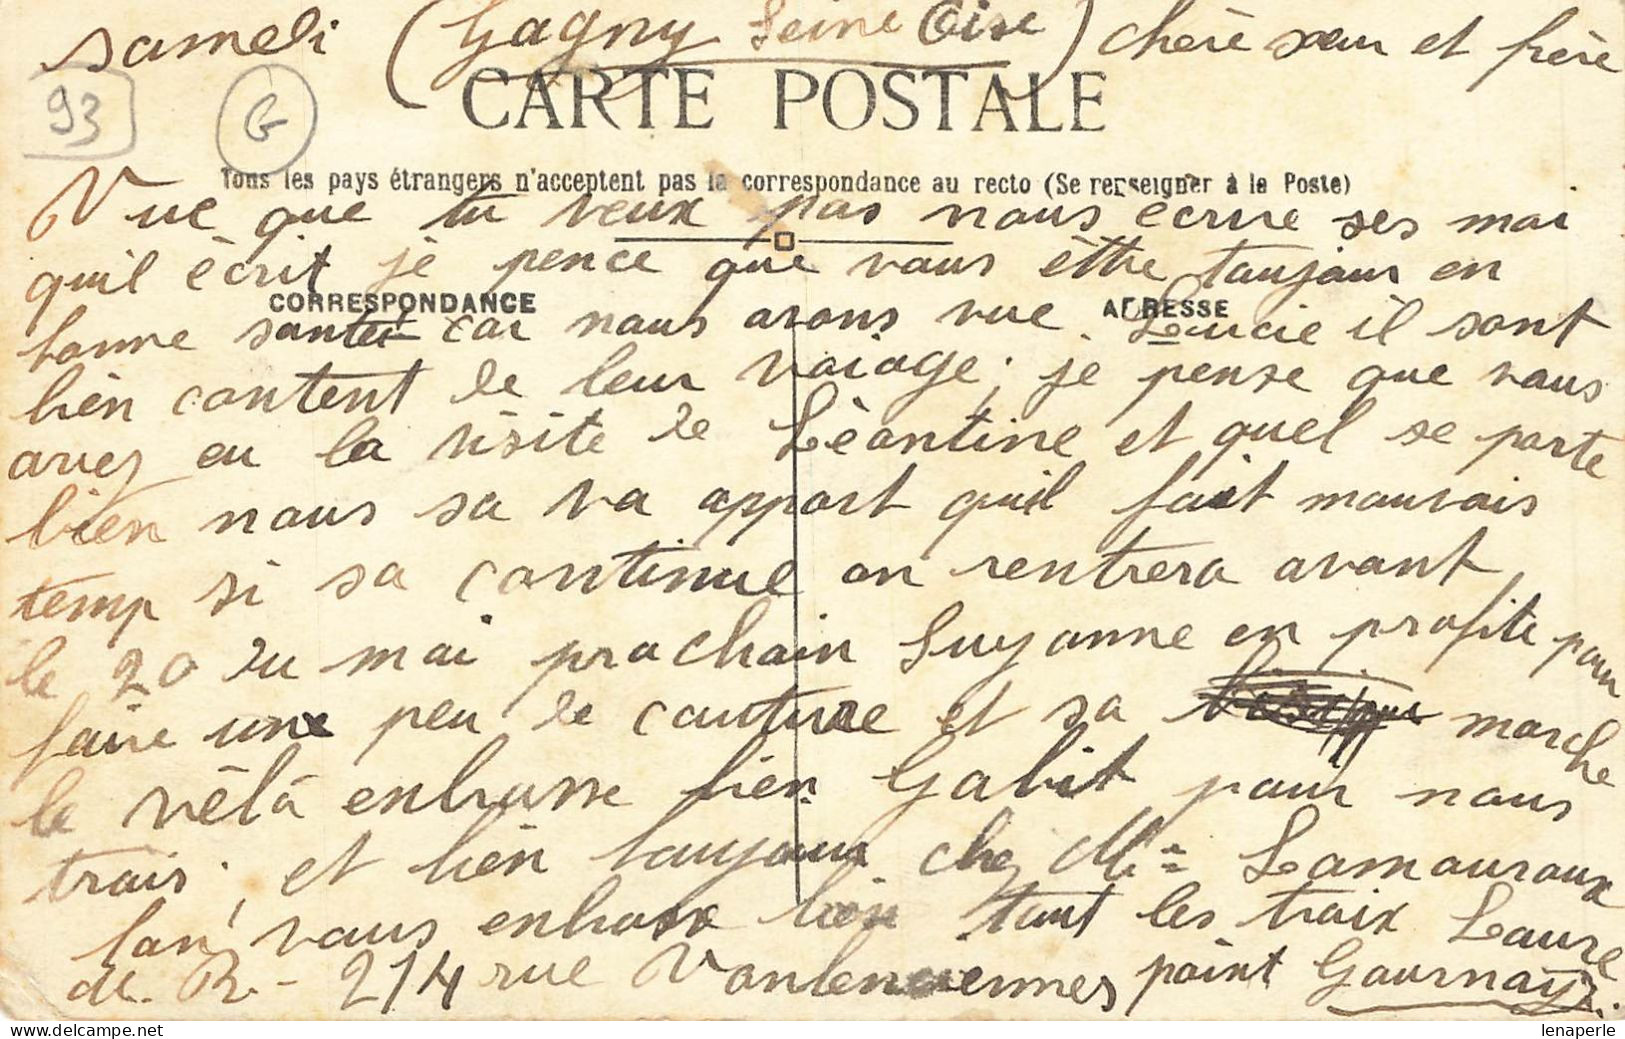 samedi (Gagny Seine Oise) chère sœur et frère
93 G
CARTE POSTALE
Tous les pays étrangers n'acceptent pas la correspondance au recto (Se renseigner à la Poste)
Vue que tu veux pas nous écrire ses moi
quil écrit je pence que vous êttre toujour en
CORRESPONDANCE ADRESSE
bonne santer car nous avons vue Lucie il sont
bièn content de leur voiage; je pense que vous
avez eu la visite de Lèontine et quel se porte
bien nous sa va apport quil fait mauvais
temp si sa continue on rentrera avant
le 20 du mai prochain Suzanne en profite pour
faire une peu de couture et sa marche
le vèlà enbrasse bien Gabit pour nous
trois, et bièn toujour chez Mr Lamouroux
bon vous enbrasse bièn tout les troix Laure
M. R. - 214 rue point Gournay.
lenaperle